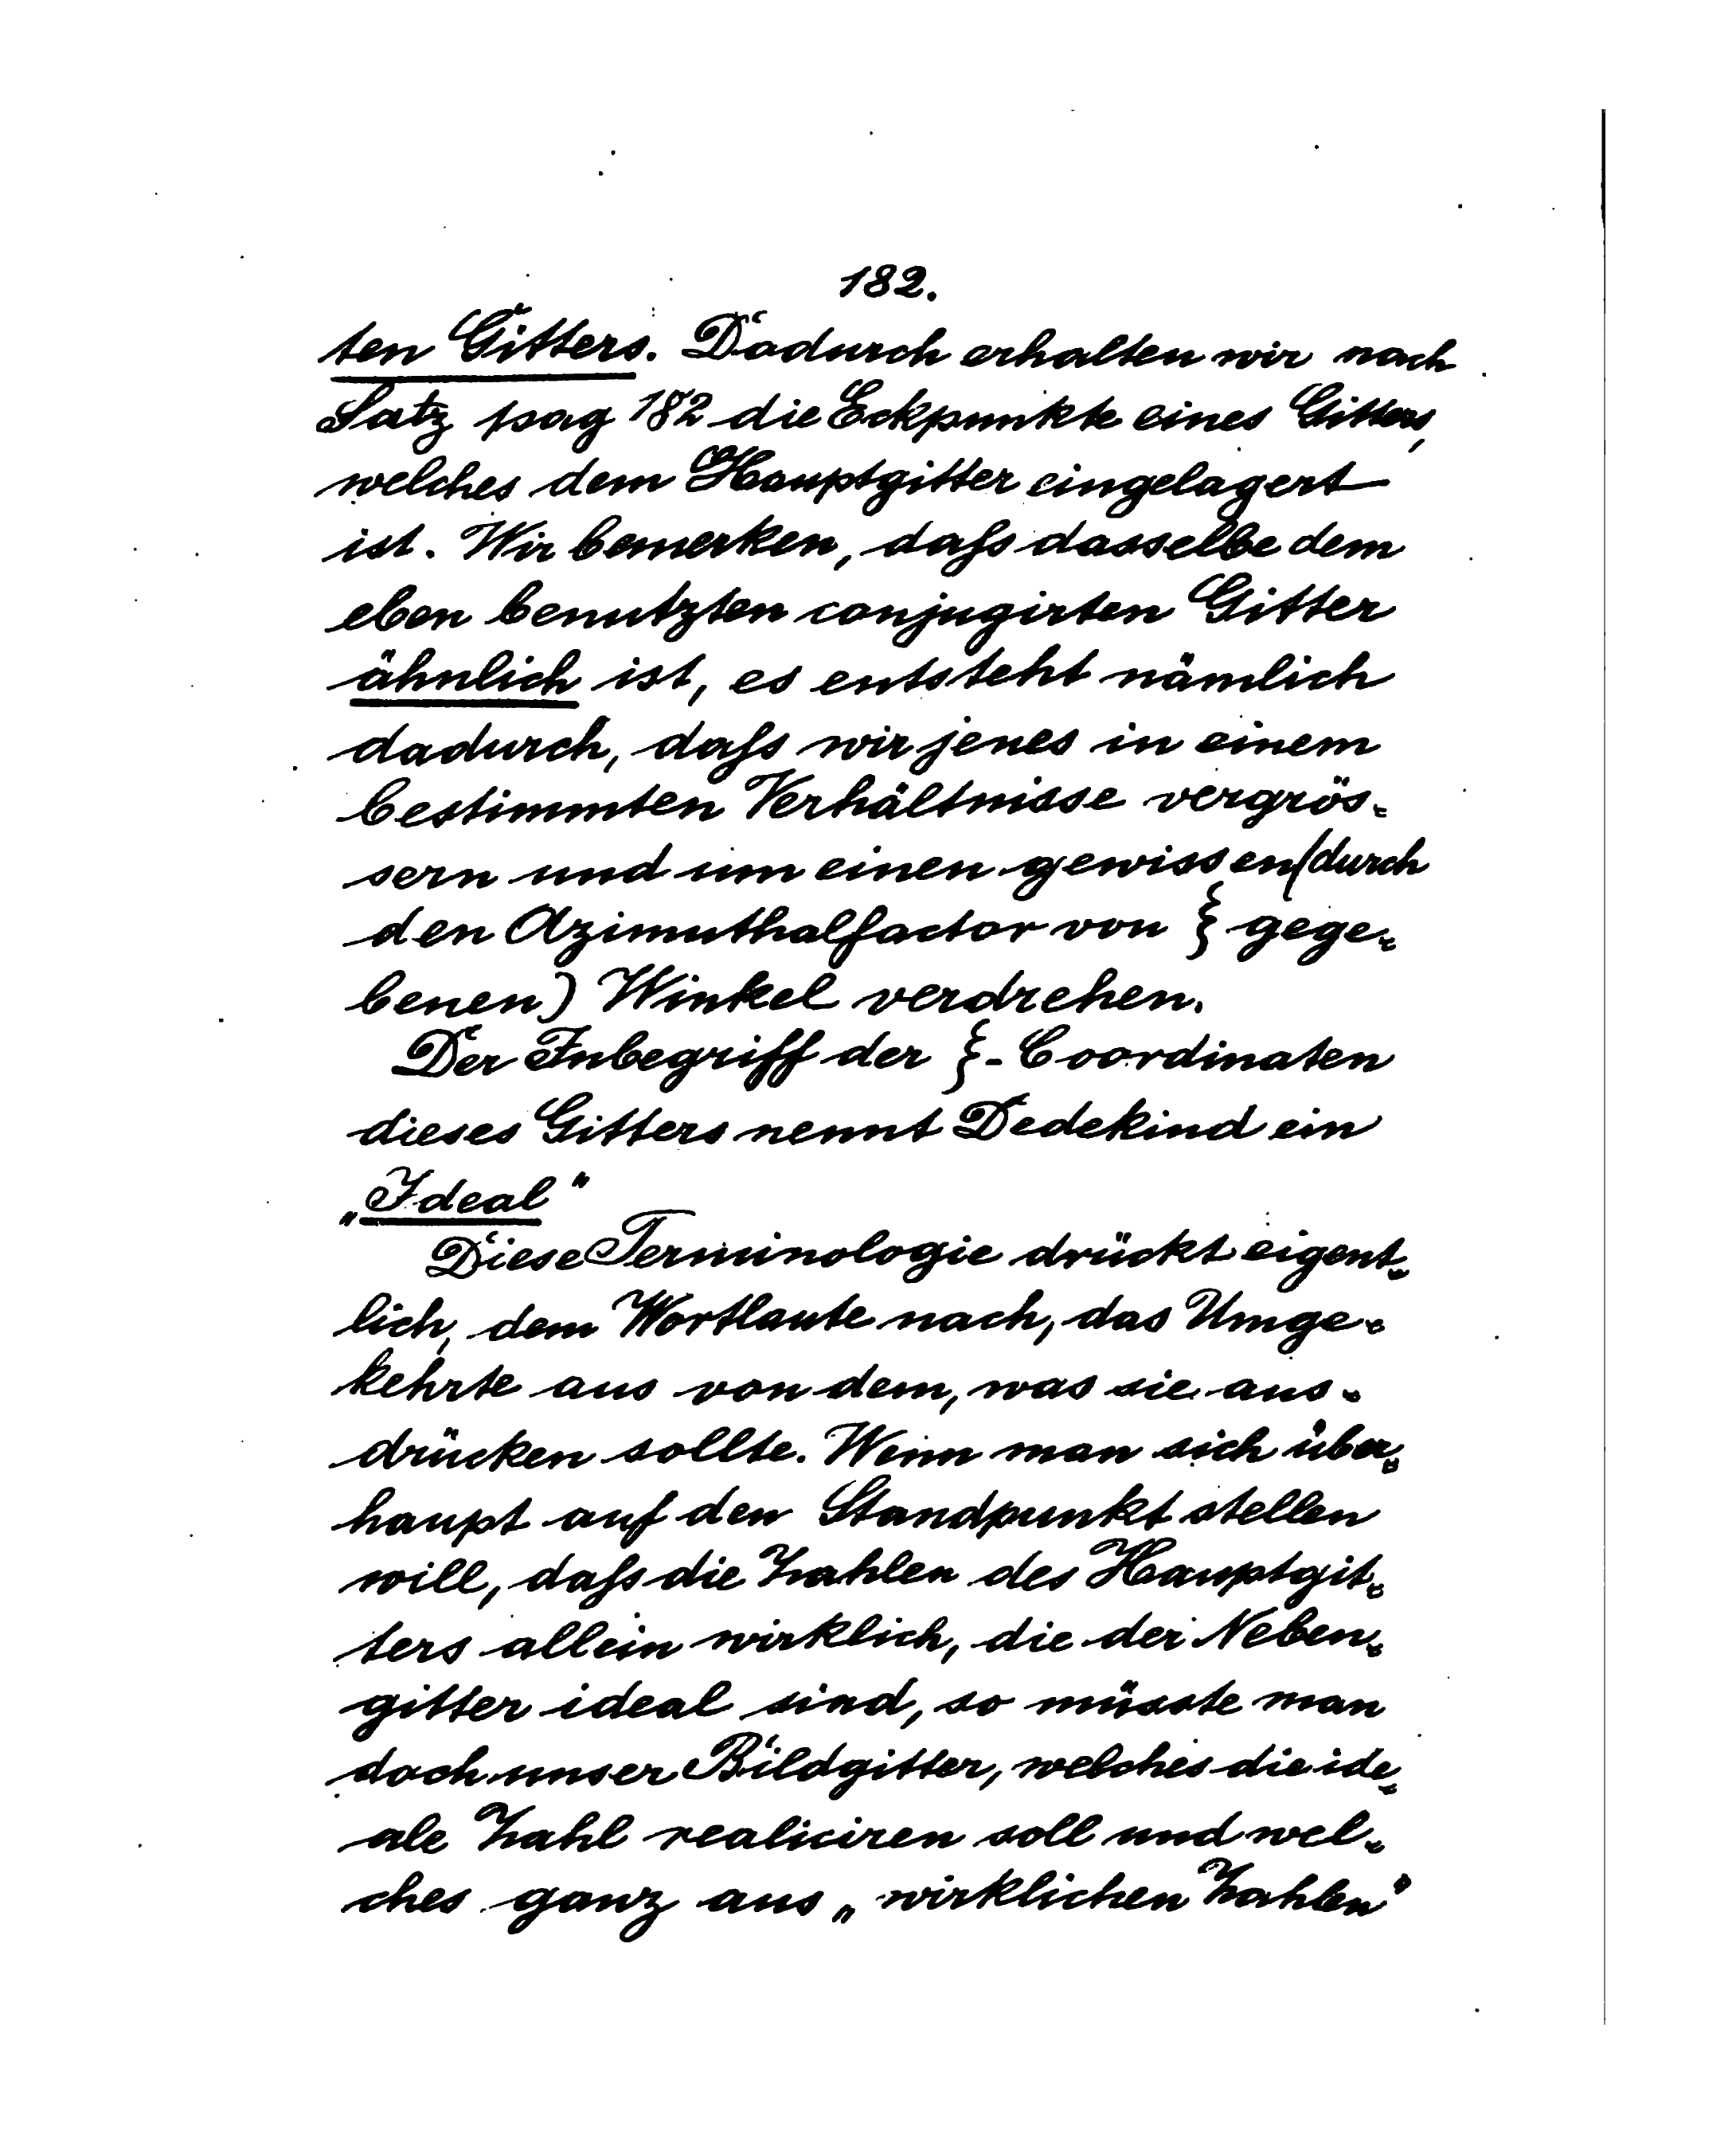 182.
ten Gitters. Dadurch erhalten wir nach
Satz pag 182 die Eckpunkte eines Gitters,
welches dem Hauptgitter eingelagert
ist. Wir bemerken, daſs dasselbe dem
eben benutzten conjugirten Gitter
ähnlich ist, es entsteht nämlich
dadurch, daſs wir jenes in einem
bestimmten Verhältnisse vergrös-
sern und um einen gewissen (durch
den Azimuthalfactor von ξ gege-
benen) Winkel verdrehen.
Der Inbegriff der ξ-Coordinaten
dieses Gitters nennt Dedekind ein
„Ideal“
Diese Terminologie drückt eigent-
lich, dem Wortlaute nach, das Umge-
kehrte aus von dem, was sie aus-
drücken sollte. Wenn man sich über-
haupt auf den Standpunkt stellen
will, daſs die Zahlen des Hauptgit-
ters allein wirklich, die der Neben-
gitter ideal sind, so müsste man
doch unser Bildgitter, welches die ide-
ale Zahl realiciren soll und wel-
ches ganz aus „wirklichen Zahlen“